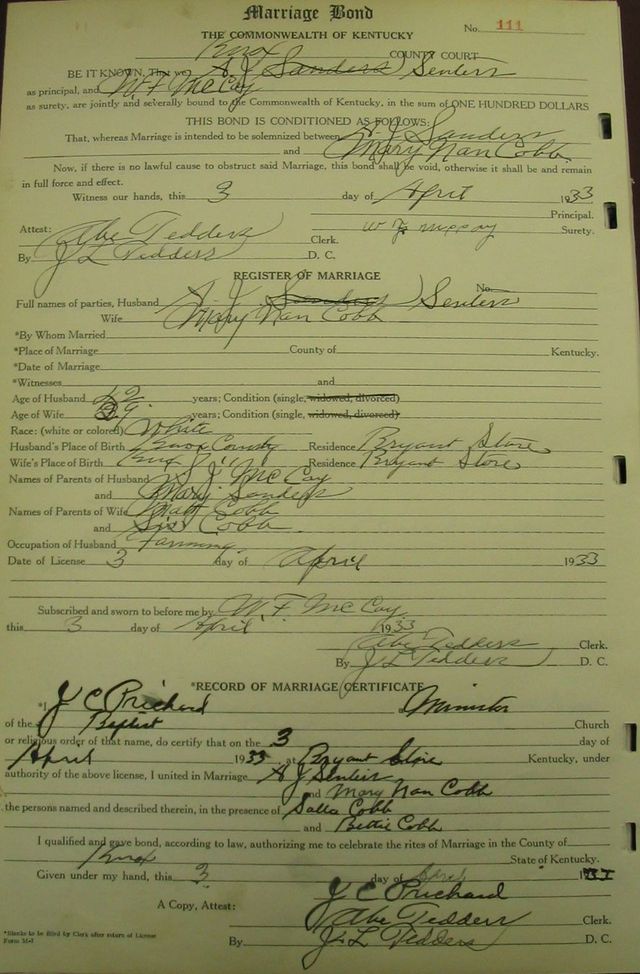 Marriage Bond
No. 111
THE COMMONWEALTH OF KENTUCKY
Knox COUNTY COURT
BE IT KNOWN, That we A J Sanders Senters
as principal, and W. F. McCoy
as surety, are jointly and severally bound to the Commonwealth of Kentucky, in the sum of ONE HUNDRED DOLLARS
THIS BOND IS CONDITIONED AS FOLLOWS:
That, whereas Marriage is intended to be solemnized between A. J. Sanders
and Mary Nan Cobb
Now, if there is no lawful cause to obstruct said Marriage, this bond shall be void, otherwise it shall be and remain
in full force and effect.
Witness our hands, this 3 day of April 1933
Principal.
Attest: W F McCoy Surety.
Abe Tedders Clerk.
By J. L Tedders D. C.
REGISTER OF MARRIAGE
No.
Full names of parties, Husband A. J. Sanders Senters
Wife Mary Nan Cobb
*By Whom Married
*Place of Marriage County of Kentucky.
*Date of Marriage
*Witnesses and
Age of Husband years; Condition (single, widowed, divorced)
Age of Wife years; Condition (single, widowed, divorced)
Race: (white or colored) White
Husband's Place of Birth Knox County Residence Bryant Store
Wife's Place of Birth Knox " Residence Bryant Store
Names of Parents of Husband J McCoy
and Mary Sanders
Names of Parents of Wife Matt Cobb
and Sis Cobb
Occupation of Husband Farming
Date of License 3 day of April 1933
Subscribed and sworn to before me by W. F McCoy
this 3 day of April 1933
Abe Tedders Clerk.
By J. L Tedders D. C.
*RECORD OF MARRIAGE CERTIFICATE
*I J C Prichard a Minister
of the Baptist Church
or religious order of that name, do certify that on the 3 day of
April 1933, at Bryant Store Kentucky, under
authority of the above license, I united in Marriage A J Senters
and Mary Nan Cobb
the persons named and described therein, in the presence of Salla Cobb
and Bettie Cobb
I qualified and gave bond, according to law, authorizing me to celebrate the rites of Marriage in the County of
Knox State of Kentucky.
Given under my hand, this 3 day of April 1933
J C Prichard
A Copy, Attest: Abe Tedders Clerk.
By J. L Tedders D. C.
*Blanks to be filled by Clerk after return of License